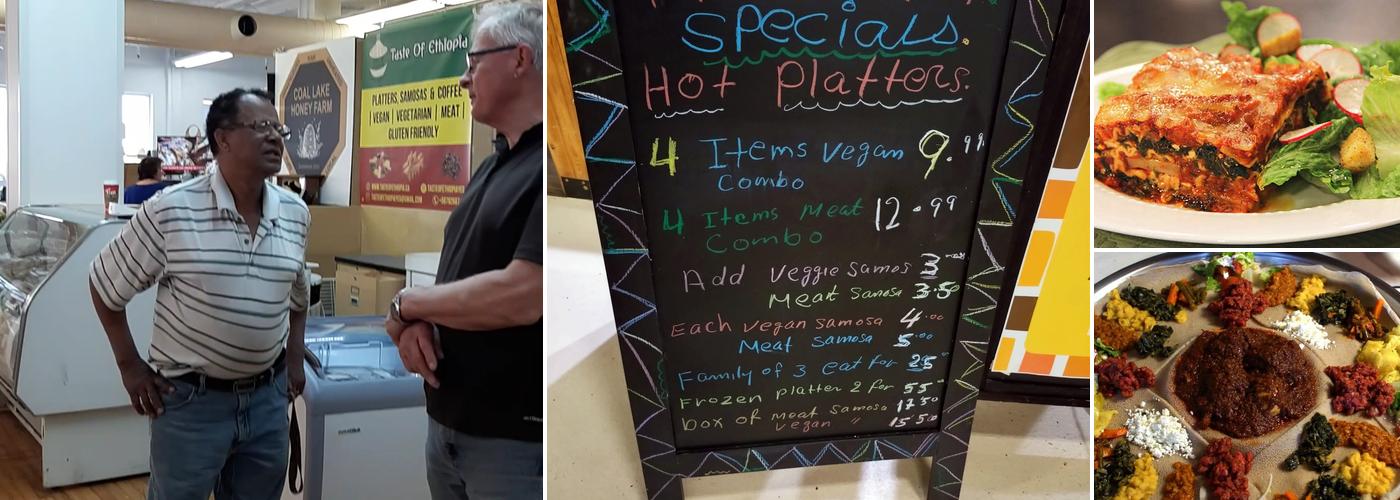 Taste Of Ethiopia
COAL LAKE
HONEY FARM
PLATTERS, SAMOSAS & COFFEE
| VEGAN | VEGETARIAN | MEAT |
GLUTEN FRIENDLY
Specials.
Hot Platters.
4 Items vegan 9.99
Combo
4 Items Meat 12.99
Combo
Add Veggie Samos 3
Meat Samosa 3.50
Each vegan samosa 4.00
Meat Samosa 5.00
Family of 3 eat for 25
Frozen platter 2 for 55
box of Meat Samosa 17.50
vegan " 15.50